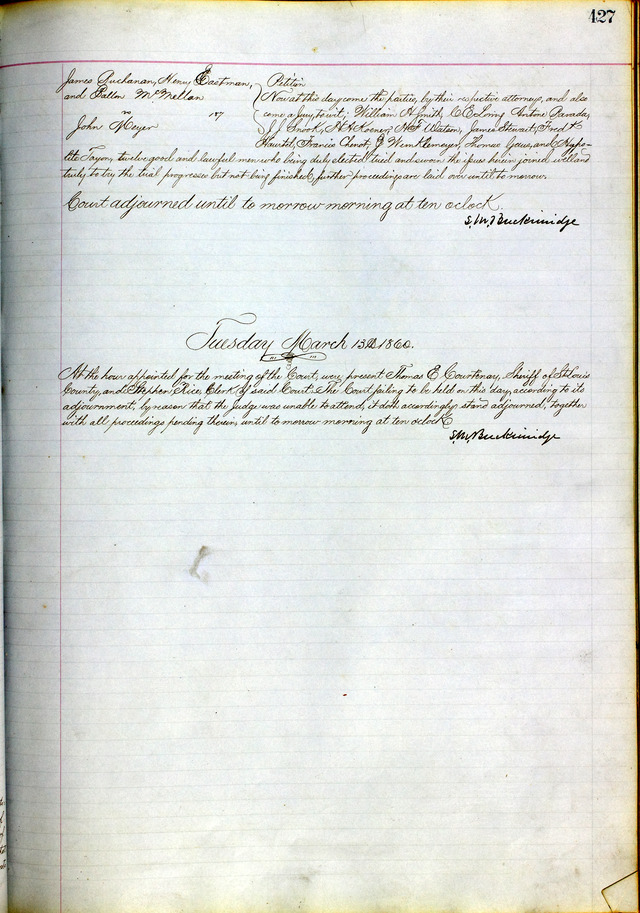 427
James Buchanan, Henry Eastman, Petition
and Patton McMellan Now at this day come the parties, by their respective attorneys, and also
vs come a jury, to wit; William H Smith, C E Loring Antone
John Meyer J J Snook, H H Koener, Watson, James Stewart, Fred k
Francis Chenot, J Wenklemeyer, Thomas and Hippo-
lite Tayon, twelve good and lawful men who being duly elected tried and sworn the issues herein joined, well and
truly to try the trial progresses but not being finished, further proceedings are laid over until to morrow.
Court adjourned until to morrow morning at ten oclock.
S. M. Breckinridge
Tuesday March 13th 1860.
At the hour appointed for the meeting of the Court, were present Thomas E Courtenay, Sheriff of St Louis
County, and Stephen Rice, Clerk of said Court. The Court failing to be held on this day, according to its
adjournment, by reason that the Judge was unable to attend, it doth accordingly stand adjourned, together
with all proceedings pending therein, until to morrow morning at ten oclock
S. M. Breckinridge